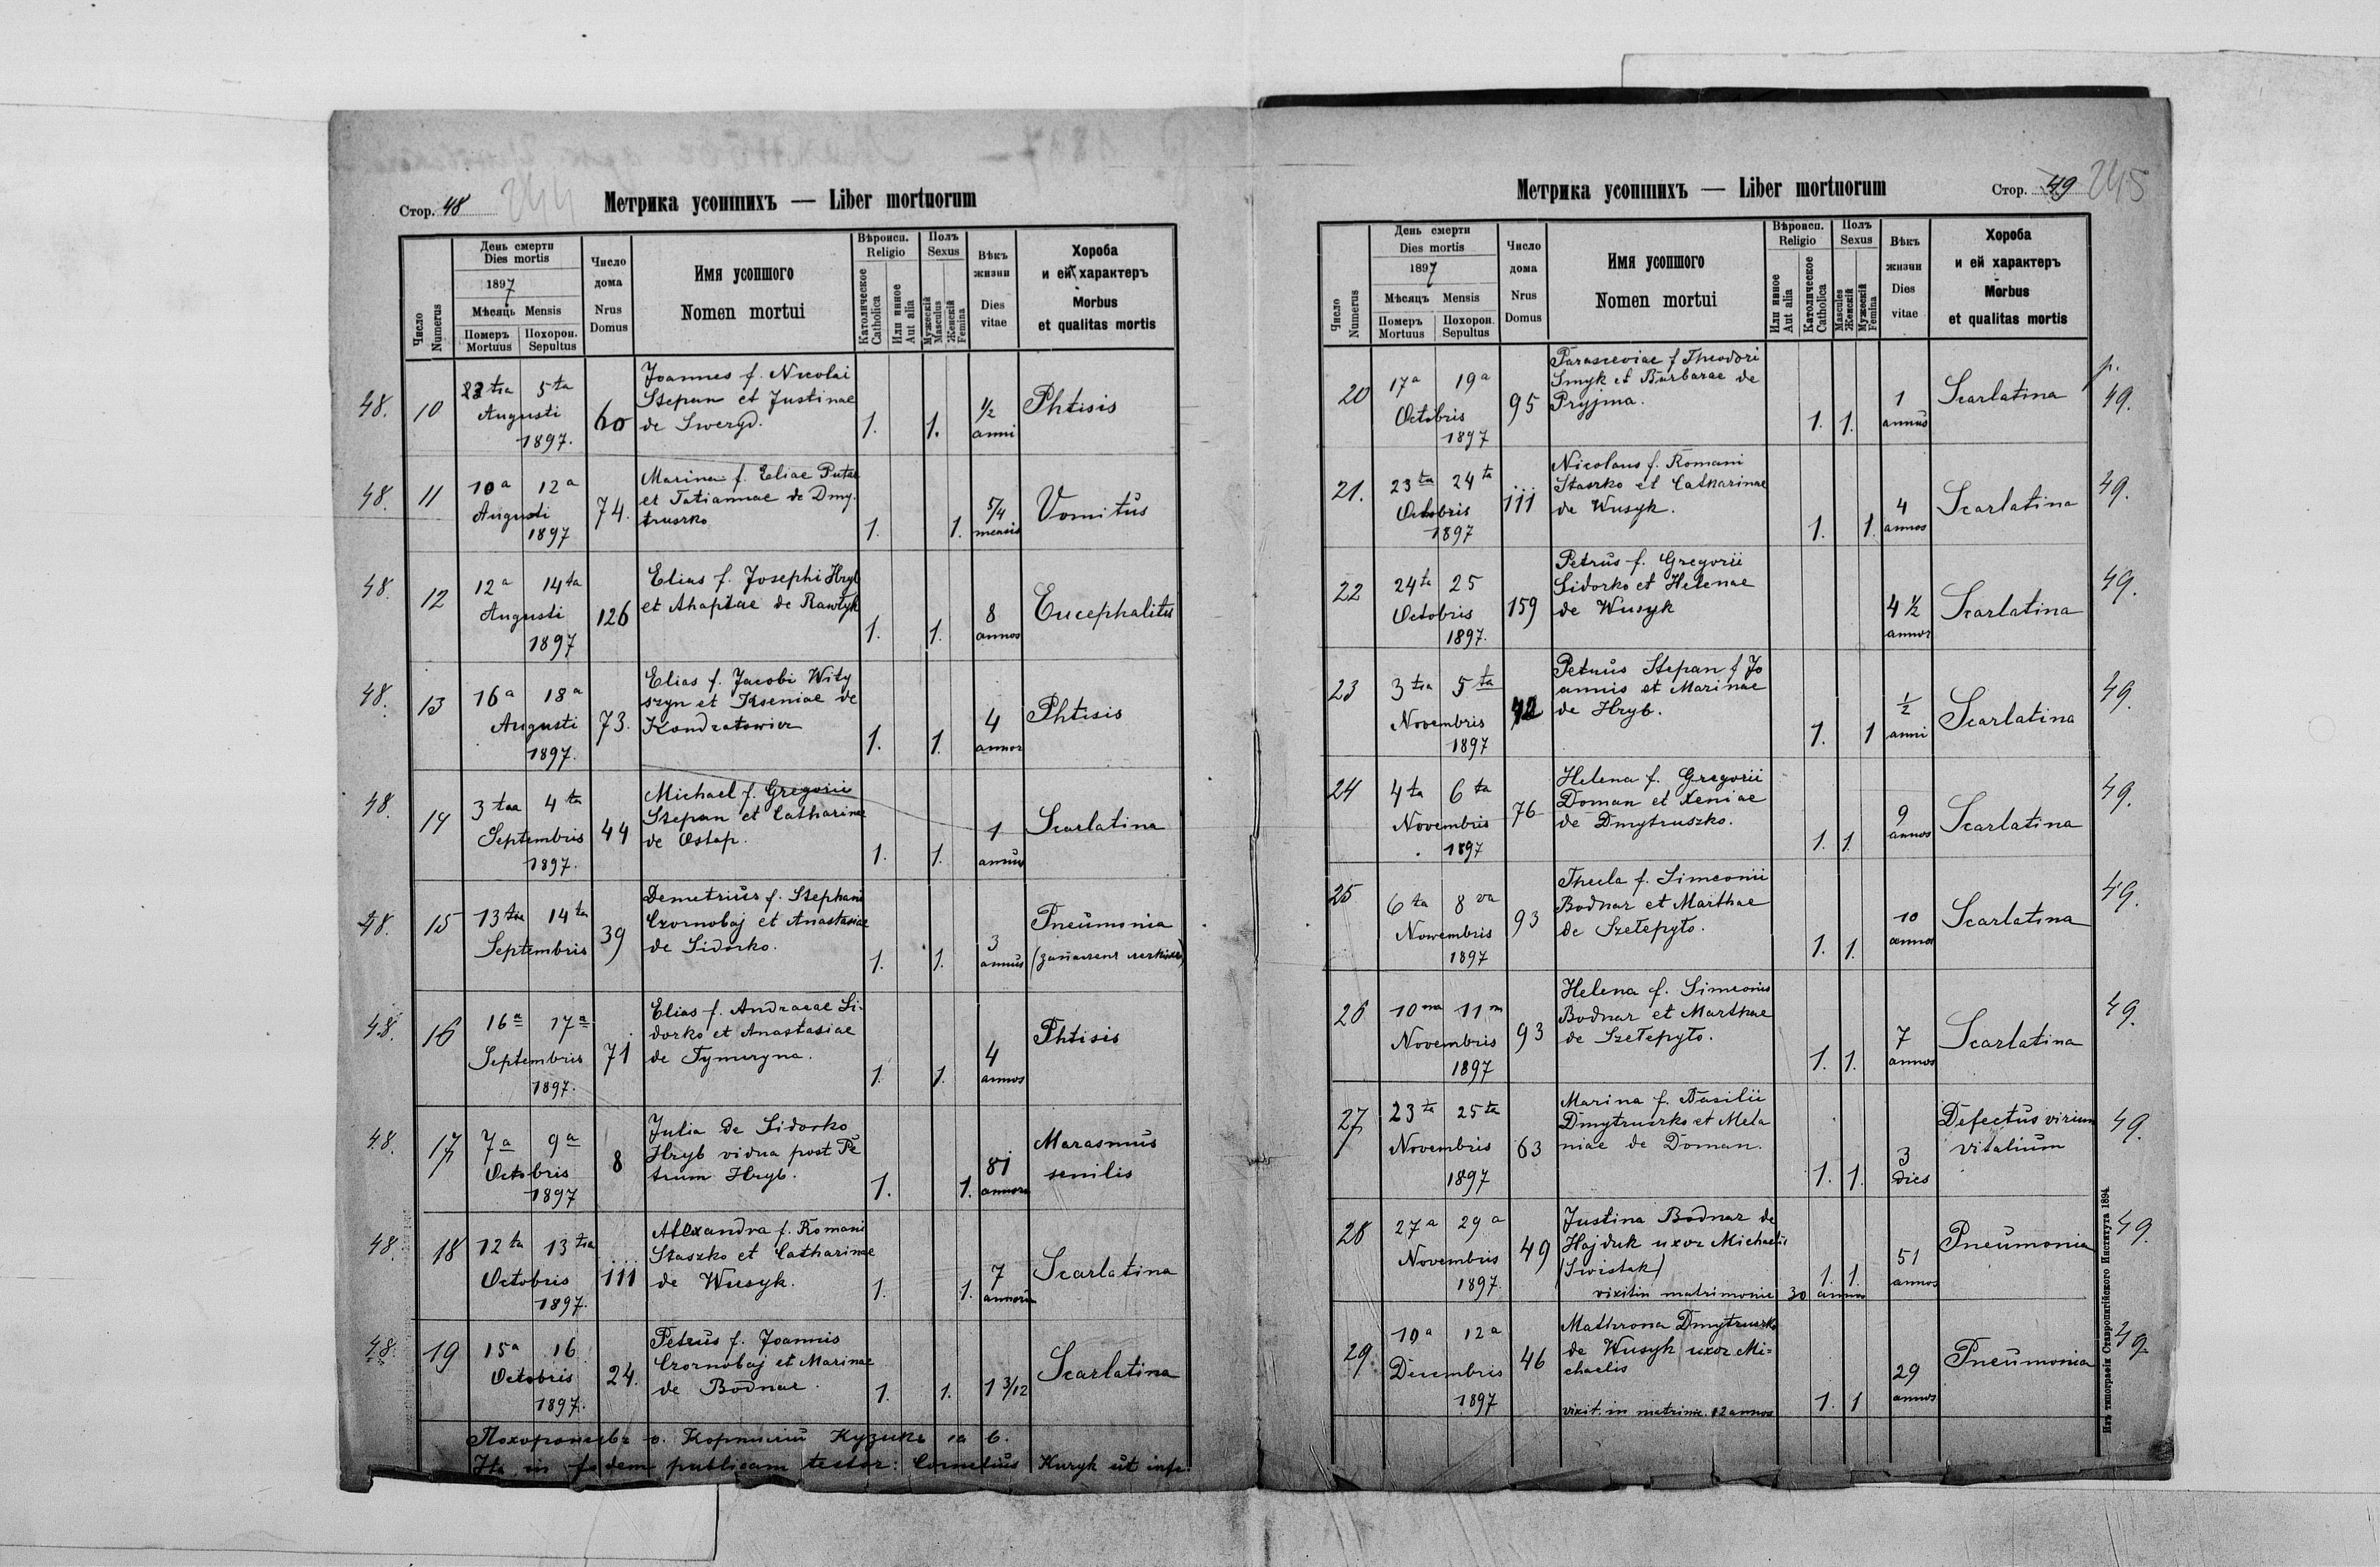 Стор. 48
Метрика усопшихъ — Liber mortuorum
Число Numerus
День смерти Dies mortis
1897
Мѣсяць Mensis
Померъ Mortuus
Похорон. Sepultus
Число дома Nrus Domus
Имя усопшого Nomen mortui
Вѣроисп. Religio
Католическое Catholica
Или инное Aut alia
Полъ Sexus
Мужескій Masculus
Женскій Femina
Вѣкъ жизни Dies vitae
Хороба и ей характеръ
Morbus et qualitas mortis
48. 10 5ta 60 Joannes f. Nicolai 1/2 Phtisis
Augusti Stepan et Justinae anni
1897. de Sweryd. 1. 1.
48. 11 10a 12a 74. Marina f. Eliae Putae 5/4 Vomitus
Augusti et Tatiannae de Dmy- mensis
1897 truszko 1. 1.
48. 12 12a 14ta 126 Elias f. Josephi Hryb 8 Encephalitis
Augusti et Ahapitae de Rawlyk annos
1897 1. 1.
48. 13 16a 18a 73. Elias f. Jacobi Wity 4 Phtisis
Augusti szyn et Kseniae de annos
1897. Kondratowicz 1. 1.
48. 14 3tia 4ta 44 Michael f. Gregorii 1 Scarlatina
Septembris Stepan et Catharinae annus
1897. de Ostap. 1. 1.
48. 15 13tia 14ta 39 Demetrius f. Stephani 3 Pneumonia
Septembris Czornobaj et Anastasiae annus
de Sidorko. 1. 1.
48. 16 16a 17a 71 Elias f. Andraeae Si- 4 Phtisis
Septembris dorko et Anastasiae annos
1897. de Tymeryna. 1. 1.
48. 17 7a 9a 8 Julia de Sidorko 81 Marasmus
Octobris Hryb vidua post Pe annorum senilis
1897 trum Hryb. 1. 1.
48. 18 12ta 13tia 111 Alexandra f. Romani 7 Scarlatina
Octobris Staszko et Catharinae annorum
1897. de Wusyk. 1. 1.
48. 19 15a 16 24. Petrus f. Joannis 1 3/12 Scarlatina
Octobris Czornobaj et Marinae
1897. de Bodnar. 1. 1.
Похоронивъ о. Корнилий Кузикъ
Ita in fidem publicam testor: Cornelius Kuzyk
244
Метрика усопшихъ — Liber mortuorum
Стор. 49 245
Число Numerus
День смерти Dies mortis
1897
Мѣсяцъ Mensis
Померъ Mortuus
Похорон. Sepultus
Число дома Nrus Domus
Имя усопшого Nomen mortui
Вѣроисп. Religio
Или инное Aut alia
Католическое Catholica
Полъ Sexus
Masculus Женскій
Мужескій Femina
Вѣкъ жизни Dies vitae
Хороба и ей характеръ
Morbus et qualitas mortis
20 17a 19a 95 Parasceviae f Theodori 1 Scarlatina p. 49.
Octobris Smyk et Barbarae de annus
1897 Pryjma. 1. 1.
21. 23tia 24ta 111 Nicolaus f. Romani 4 Scarlatina 49.
Octobris Staszko et Catharinae annos
1897 de Wusyk. 1. 1.
22 24ta 25 159 Petrus f. Gregorii 4 1/2 Scarlatina 49.
Octobris Sidorko et Helenae annos
1897. de Wusyk
23 3tia 5ta 42 Petrus Stepan f Jo 1/2 Scarlatina 49.
Novembris annis et Marinae anni
1897 de Hryb. 1. 1
24 4ta 6ta 76 Helena f. Gregorii 9 Scarlatina 49.
Novembris Doman et Xeniae annos
1897 de Dmytruszko. 1. 1.
25 6ta 8va 93 Thecla f. Simeonii 10 Scarlatina 49.
Novembris Bodnar et Marthae annos
1897 de Szelepyło. 1. 1.
26 10ma 11m 93 Helena f. Simeonis 7 Scarlatina 49.
Novembris Bodnar et Marthae annos
1897 de Szelepyło. 1. 1.
27 23tia 25ta 63 Marina f. Basilii 3 Defectus virium 49.
Novembris Dmytruszko et Mela dies vitalium
1897 niae de Doman. 1. 1.
28 27a 29a 49 Justina Bodnar de 51 Pneumonia 49.
Novembris Hajduk uxor Michaelis annos
1897. (Swistak) 1. 1.
vixit in matrimonio 30 annos
29. 10a 12a 46 Mathrona Dmytruszko 29 Pneumonia 49
Decembris de Wusyk uxor Mi= annos
1897 chaelis 1. 1
vixit. in matrim. 12 annos
Изъ типографіи Ставропигійского Института 1894.